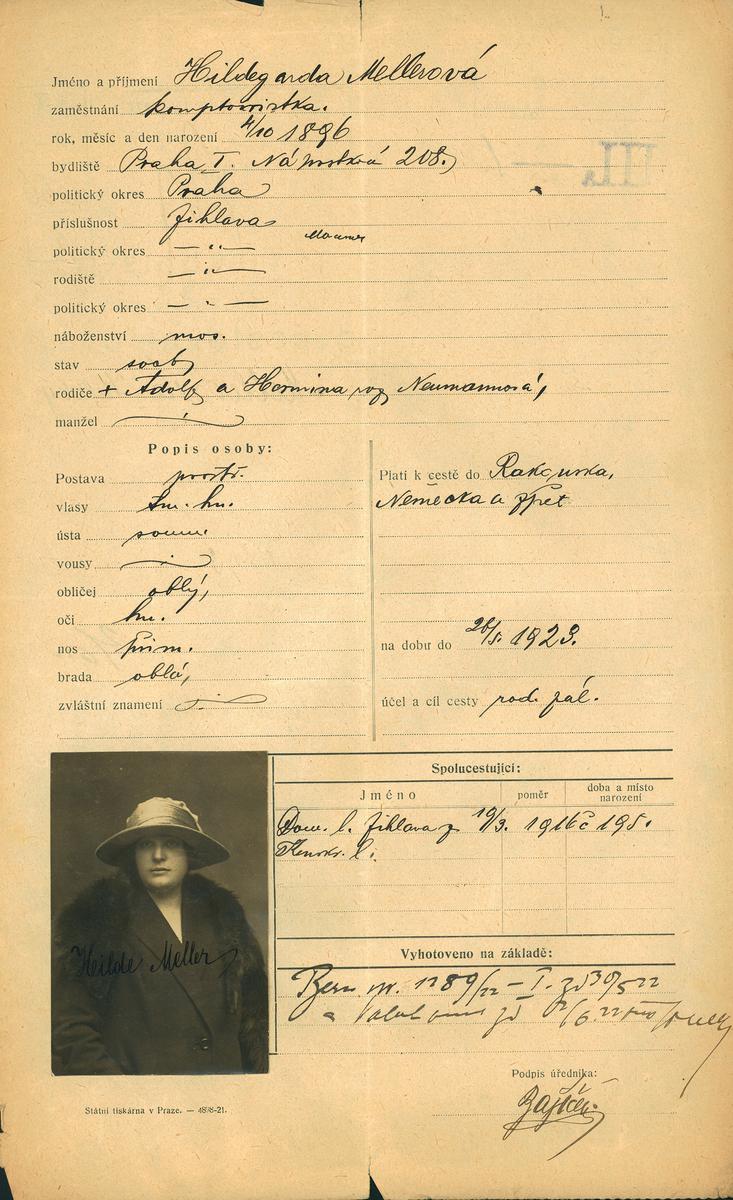 Jméno a příjmení Hildegarda Mellerová
zaměstnání komptoiristka.
rok, měsíc a den narození 4/10 1896
bydliště Praha I. Náprstková 208.
politický okres Praha
příslušnost Jihlava
politický okres — " —
rodiště — " —
politický okres — " —
náboženství mos.
stav svob.
rodiče + Adolf a Hermina roz. Neumannová,
manžel
Popis osoby:
Postava prostř.
vlasy tm. hn.
ústa soum.
vousy
obličej oblý,
oči hn.
nos přim.
brada oblá,
zvláštní znamení
Platí k cestě do Rakouska,
Německa a zpět
na dobu do 26/5 1923.
účel a cíl cesty rod. zál.
Spolucestující:
Jméno poměr doba a místo narození
Dom. l. Jihlava z 19/3. 1916 č 195.
Vyhotoveno na základě:
1289/22 — I. 30/5 22
a
Podpis úředníka:
Hilde Meller
Státní tiskárna v Praze. — 4898-21.
III